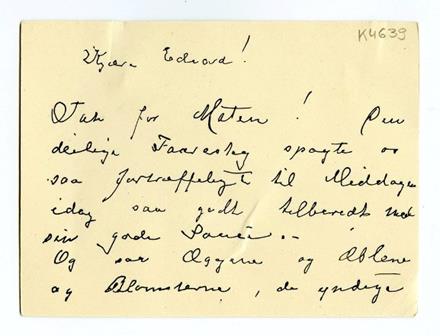 K4639
Kjære Edvard!
Tak for Maten! Den
deilige Faaresteg smagte os
saa fortræffeligt til Middagen
idag saa godt tilberedt med
sin gode Sauce. -
Og saa Æggene og Æblene
og Blomsterne, de yndige